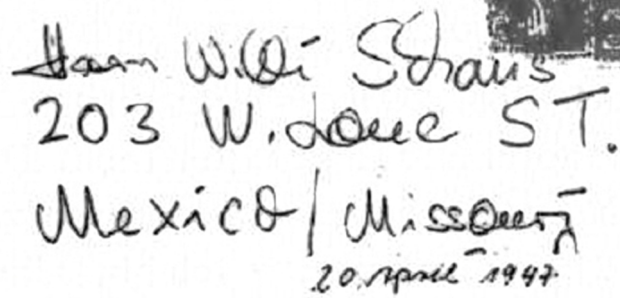 Herrn Willi Schaus
203 W. Love ST.
Mexico/Missouri
20. April 1947